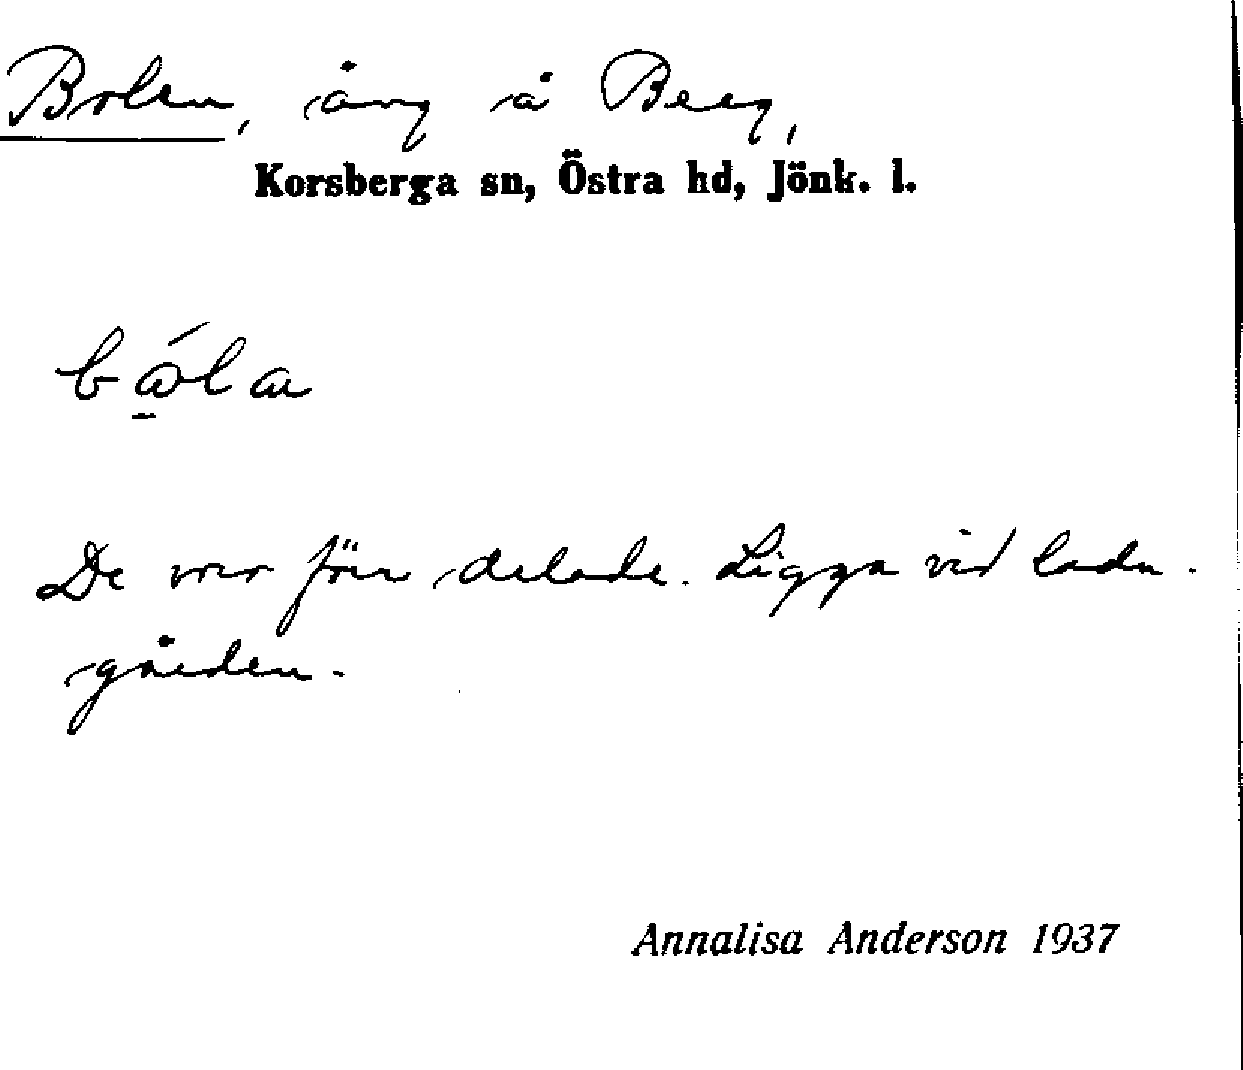 Bolen, äng å Berg,
Korsberga sn, Östra hd, Jönk. l.
De voro förr delade. Ligga vid ladu-
gården.
Annalisa Anderson 1937